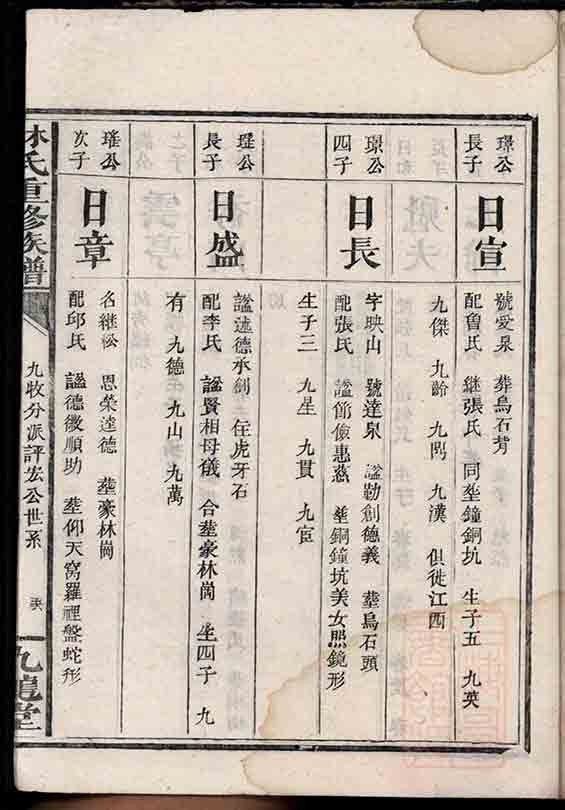 璟公
長子
日宣
號愛泉 葬烏石背
配魯氏 継張氏 同塟鐘銅坑 生子五 九英
九傑 九齡 九 九漢 俱徙江西
璟公
四子
日長
字映山 號達泉 謚勤創德義 塟烏石頭
配張氏 謚節儉惠慈 塟銅鐘坑美女照鏡形
生子三 九星 九貫 九宦
琟公
長子
日盛
謚述德承創 住虎牙石
配李氏 謚賢相母儀 合塟豪林崗 生四子 九
有 九德 九山 九萬
琟公
次子
日章
名継松 恩榮達德 塟豪林崗
配邱氏 謚德徽順助 塟仰天窩羅裡盤蛇形
林氏重修族譜
九牧分派評宏公世系
九龍堂